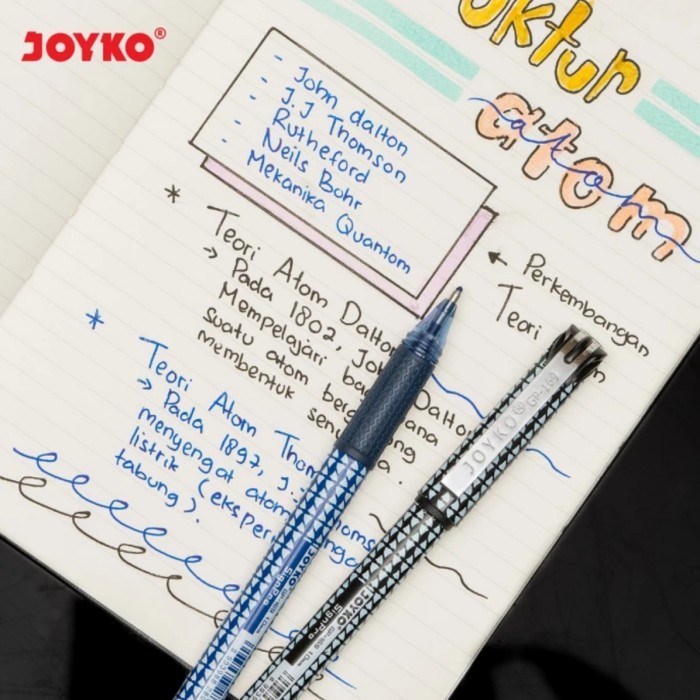 JOYKO®
uktur
atom
- John dalton
- J.J Thomson
- Rutheford
- Neils Bohr
- Mekanika Quantom
← Perkembangan
Teori
* Teori Atom Dalton
→ Pada 1802, Joh Dalto
Mempelajari ba ana
suatu atom berg ung
membentuk sen a.
* Teori Atom Thom
→ Pada 1897, J. homs
menyengat atom
listrik (eksperi
tabung).
JOYKO® GP-169
JOYKO®
SignPro
1.0mm
JOYKO®
SignPro
1.0mm